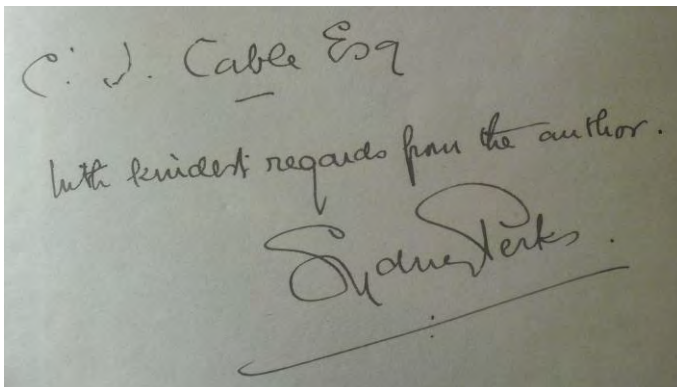 C. J. Cable Esq
With kindest regards from the author.
Sydney Perks.